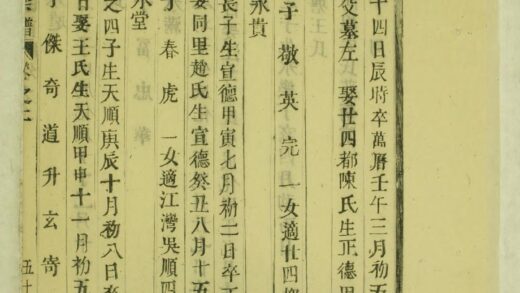 十四日辰時卒萬曆壬午三月初五
父墓左 娶廿四都陳氏生正德
子 敬 英 完 一女適廿四都
永貴
長子生宣德甲寅七月初二日卒
娶同里趙氏生宣德癸丑八月十五
子 春 虎 一女適江灣吳順四
永堂
之四子生天順庚辰十月初八日卒
日娶王氏生天順甲申十一月初五
子 傑 奇 道 升 玄 寄
譜 卷之二 五十